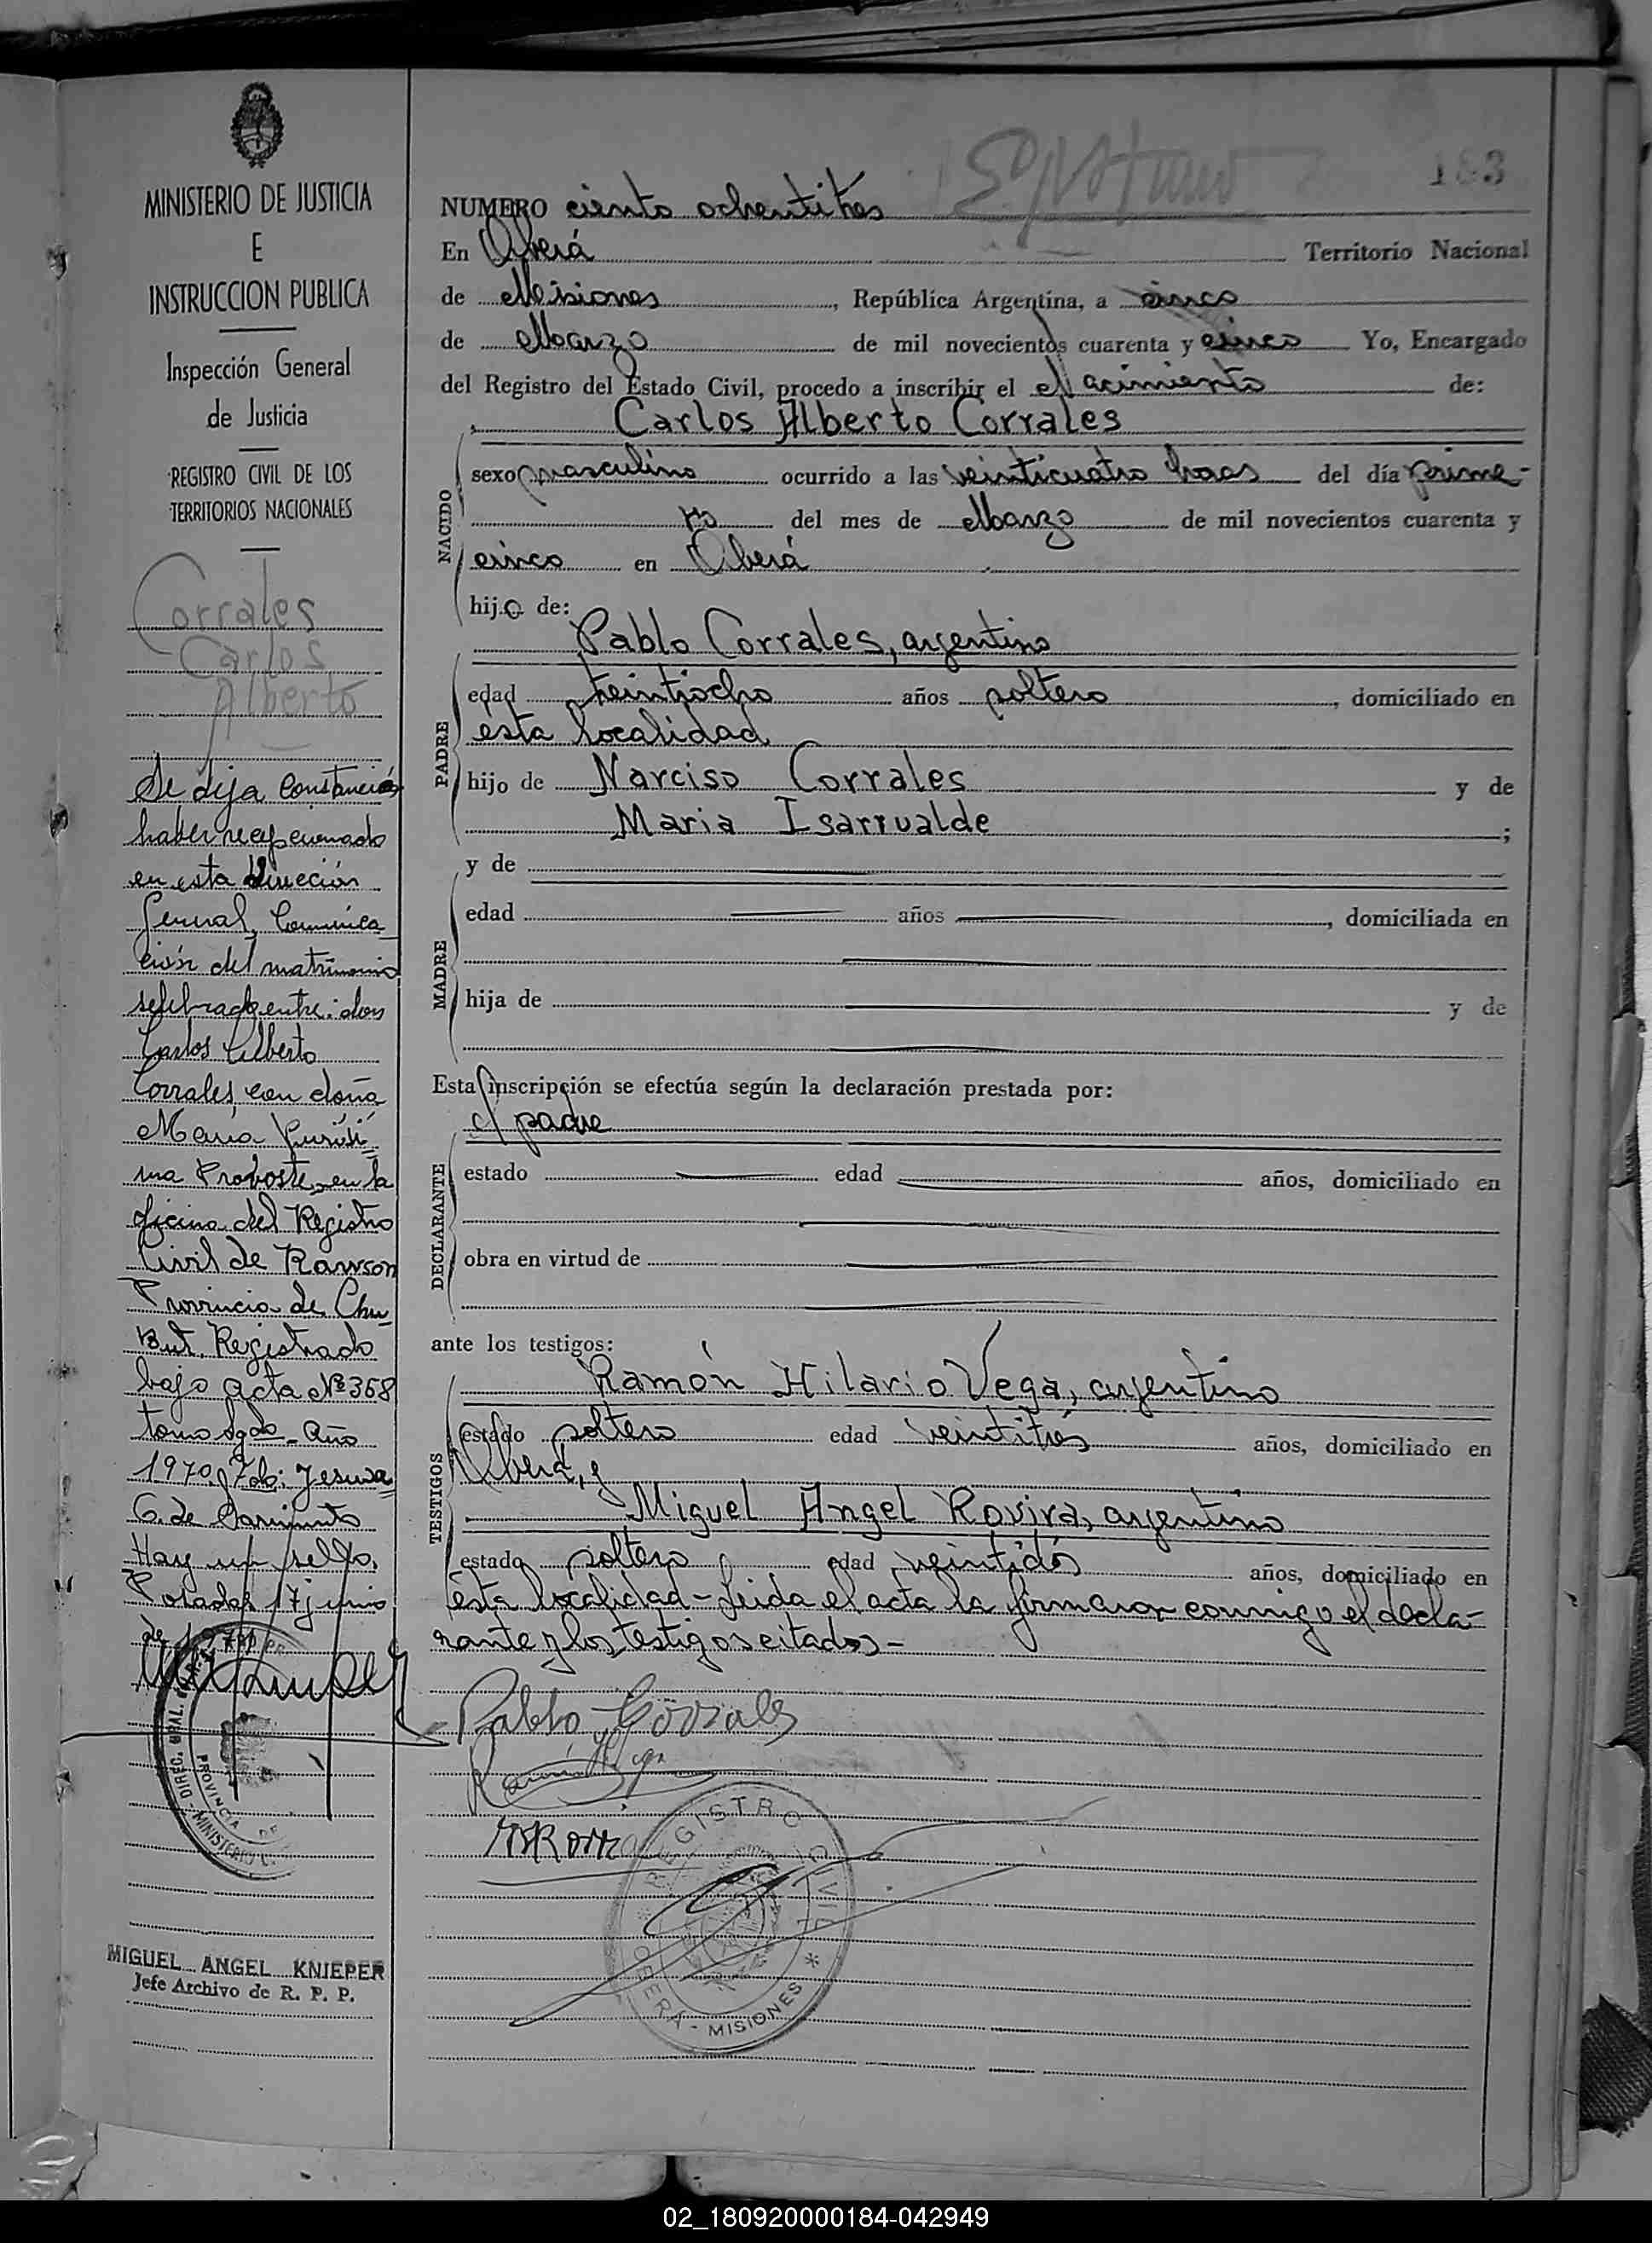 MINISTERIO DE JUSTICIA
E
INSTRUCCION PUBLICA
Inspección General
de Justicia
REGISTRO CIVIL DE LOS
TERRITORIOS NACIONALES
Corrales
Carlos
Alberto
Se deja constancia
haber recepcionado
en esta Dirección
General, Comunica
ción del matrimonio
selebrado entre: don
Carlos Alberto
Corrales, con doña
Maria Purisi
ma Proboste, en la
oficina del Registro
Civil de Rawson
Provincia de Chu
But. Registrado
bajo acta Nº 368
tomo Sgdo - Año
1970. Fdo: Jesusa
G. de Sarmiento
Hay un sello.
Posadas 17 junio
de 1970
DIREC. GRAL.
PROVINCIA DE
MINISTERIO
MIGUEL ANGEL KNIEPER
Jefe Archivo de R. P. P.
183
NUMERO ciento ochentitres
En Oberá Territorio Nacional
de Misiones, República Argentina, a cinco
de Marzo de mil novecientos cuarenta y cinco Yo, Encargado
del Registro del Estado Civil, procedo a inscribir el Nacimiento de:
Carlos Alberto Corrales
NACIDO
sexo masculino ocurrido a las veinticuatro horas del día prime-
ro del mes de Marzo de mil novecientos cuarenta y
cinco en Oberá
hijo de:
Pablo Corrales, argentino
PADRE
edad treintiocho años soltero, domiciliado en
esta localidad
hijo de Narciso Corrales y de
Maria Isarrualde;
y de
MADRE
edad años, domiciliada en
hija de y de
Esta inscripción se efectúa según la declaración prestada por:
el padre
DECLARANTE
estado edad años, domiciliado en
obra en virtud de
ante los testigos:
Ramón Hilario Vega, argentino
TESTIGOS
estado soltero edad veintitrés años, domiciliado en
Oberá, y
Miguel Angel Rovira, argentino
estado soltero edad veintidós años, domiciliado en
esta localidad - Leida el acta la firmaron conmigo el decla-
rante y los testigos citados -
Pablo Corrales
Ramón Vega
REGISTRO CIVIL
OBERÁ - MISIONES *
02_180920000184-042949